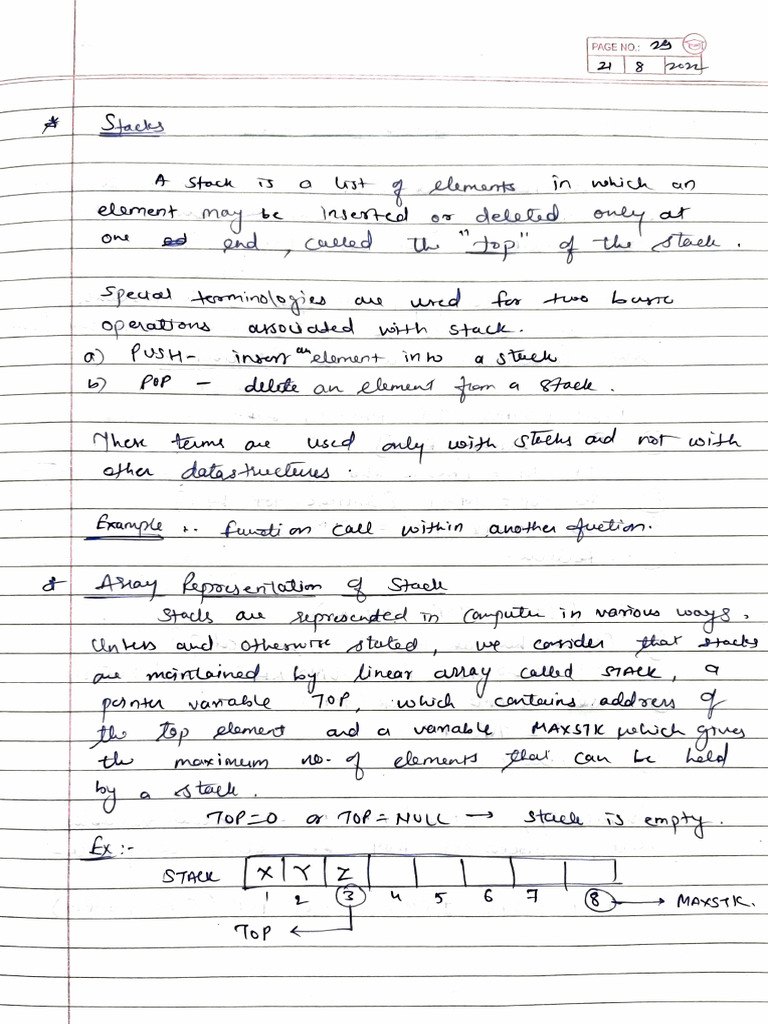 PAGE NO.: 29
21 8 2022
* Stacks
A stack is a list of elements in which an
element may be inserted or deleted only at
one end, called the "top" of the stack.
Special terminologies are used for two basic
operations associated with stack.
a) PUSH - insert an element into a stack
b) POP - delete an element from a stack.
These terms are used only with stacks and not with
other datastructures.
Example :. function call within another fuction.
* Array Representation of Stack
Stacks are represented in computer in various ways.
Unless and otherwise stated, we consider that stacks
are maintained by linear array called STACK, a
pointer variable TOP, which contains address of
the top element and a variable MAXSTK which gives
the maximum no. of elements that can be held
by a stack.
TOP=0 or TOP=NULL → stack is empty.
Ex:-
STACK X Y Z
1 2 3 4 5 6 7 8 → MAXSTK.
TOP ←